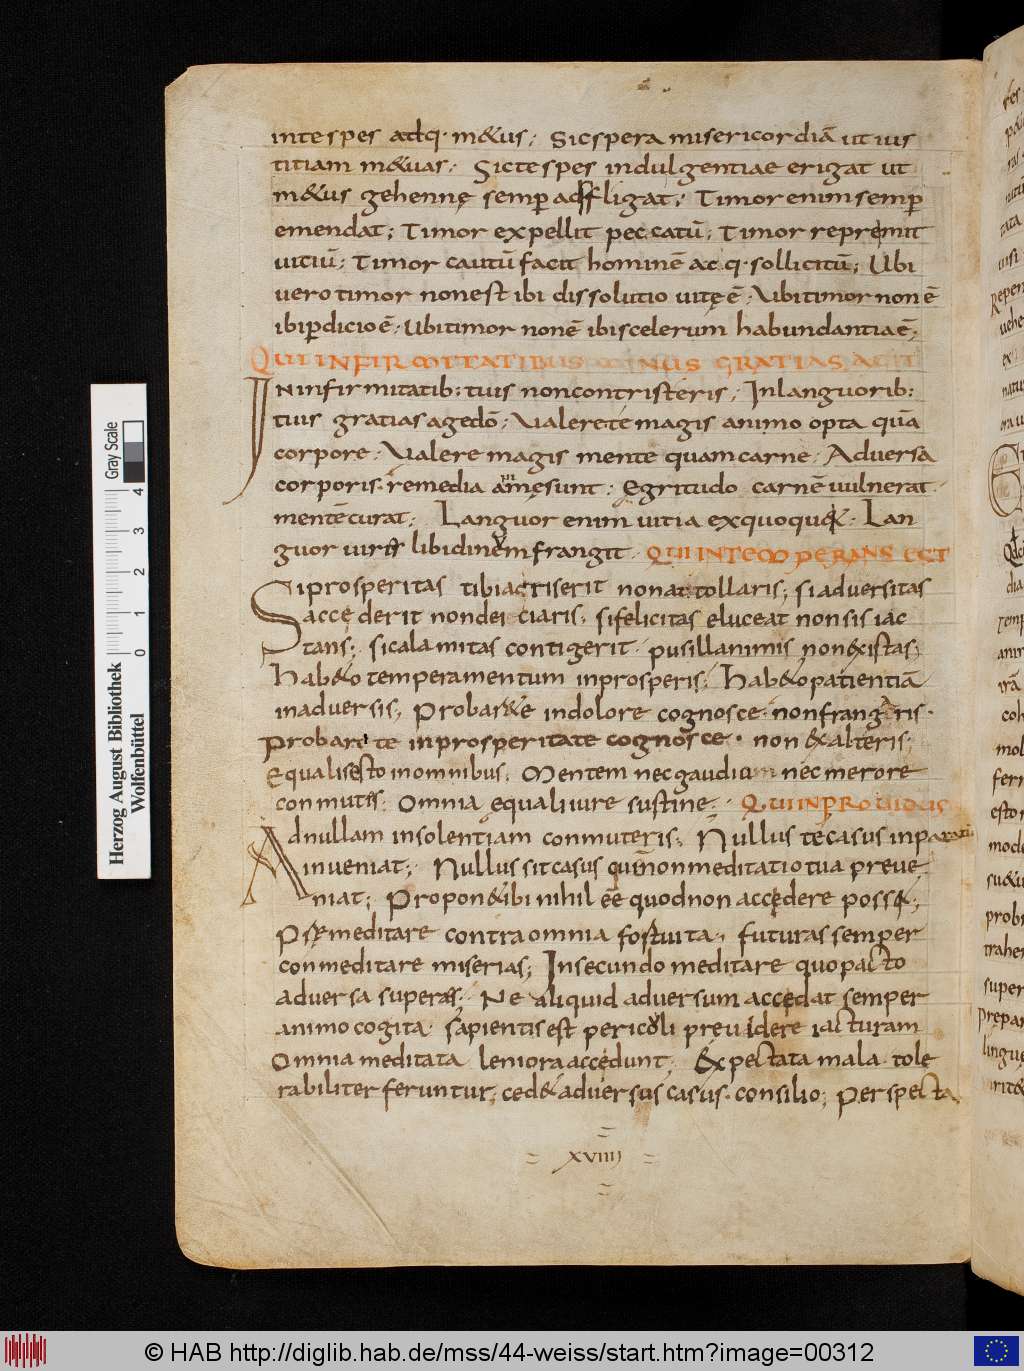 inte spes atq· m&us; Sic spera misericordiā ut ius
titiam m&uas; Sic te spes indulgentiae erigat ut
m&us gehennę semp adfligat; Timor enim semp
emendat; Timor expellit peccatū; Timor repremit
uitiū; Timor cautū facit hominē ac q· sollicitū; Ubi
uero timor non est ibi dissolutio uitę ē; Ubi timor non ē
ibi pdicio ē; Ubi timor non ē ibi scelerum habundantia ē;
QUI INFIRMITATIBUS MINUS GRATIAS AGIT
In infirmitatib: tuis non contristeris; In languorib:
tuis gratias age dō; Ualere te magis animo opta quā
corpore; Ualere magis mente quam carne; Aduersa
corporis remedia animę sunt; Egritudo carnē uulnerat
mentē curat; Languor enim uitia exquoqu&; Lan
guor uires libidinum frangit QUI INTEMPERANS EST
Si prosperitas tibi acriserit non attollaris; si aduersitas
accederit non deiciaris; si felicitas eluceat non sis iac
tans; si calamitas contigerit pusillanimis non existas;
hab&o temperamentum in prosperis; hab&o patientiā
in aduersis; Probari te in dolore cognosce non frangaris·
Probari te in prosperitate cognosce· non exalteris;
Equalis esto in omnibus; Mentem nec gaudium nec merore
conmutes; Omnia equali iure sustine; QUI INPROUIDUS
Ad nullam insolentiam conmuteris; Nullus te casus inparatū
inueniat; Nullus sit casus quē non meditatio tua preue
niat; Propon& ibi nihil ēe quod non accedere poss&;
Psemeditare contra omnia fortuita, futuras semper
conmeditare miserias; In secundo meditare quo pacto
aduersa superes; Ne aliquid aduersum accedat semper
animo cogita· sapientis est periculi preuidere iacturam
Omnia meditata leniora accedunt; Expectata mala tole
rabiliter feruntur; ced& aduersus casus consilio; Perspecta
xviiii
res
Gray Scale
4
3
2
1
0
Herzog August Bibliothek
Wolfenbüttel
© HAB http://diglib.hab.de/mss/44-weiss/start.htm?image=00312